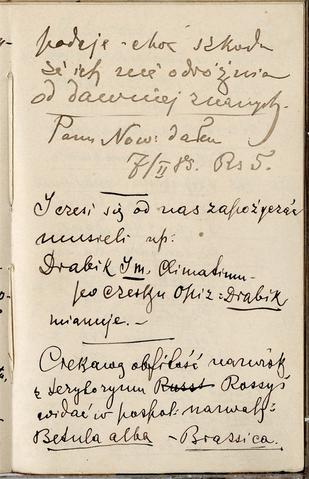 podaje – choć szkoda
że ich nie odróżnia
od dawniej znanych.
Panu Now: dałem
7/II 89. Rs 5.
I czesi się od nas zapożyczać
musieli np:
Drabik Im. Climatium –
po czesku Opiz = Drabik
mianuje. –
Ciekawą obfitość nazwisk
z terytoryum Russk Rossyi
widać w pospol: nazwach:
Betula alba – Brassica.